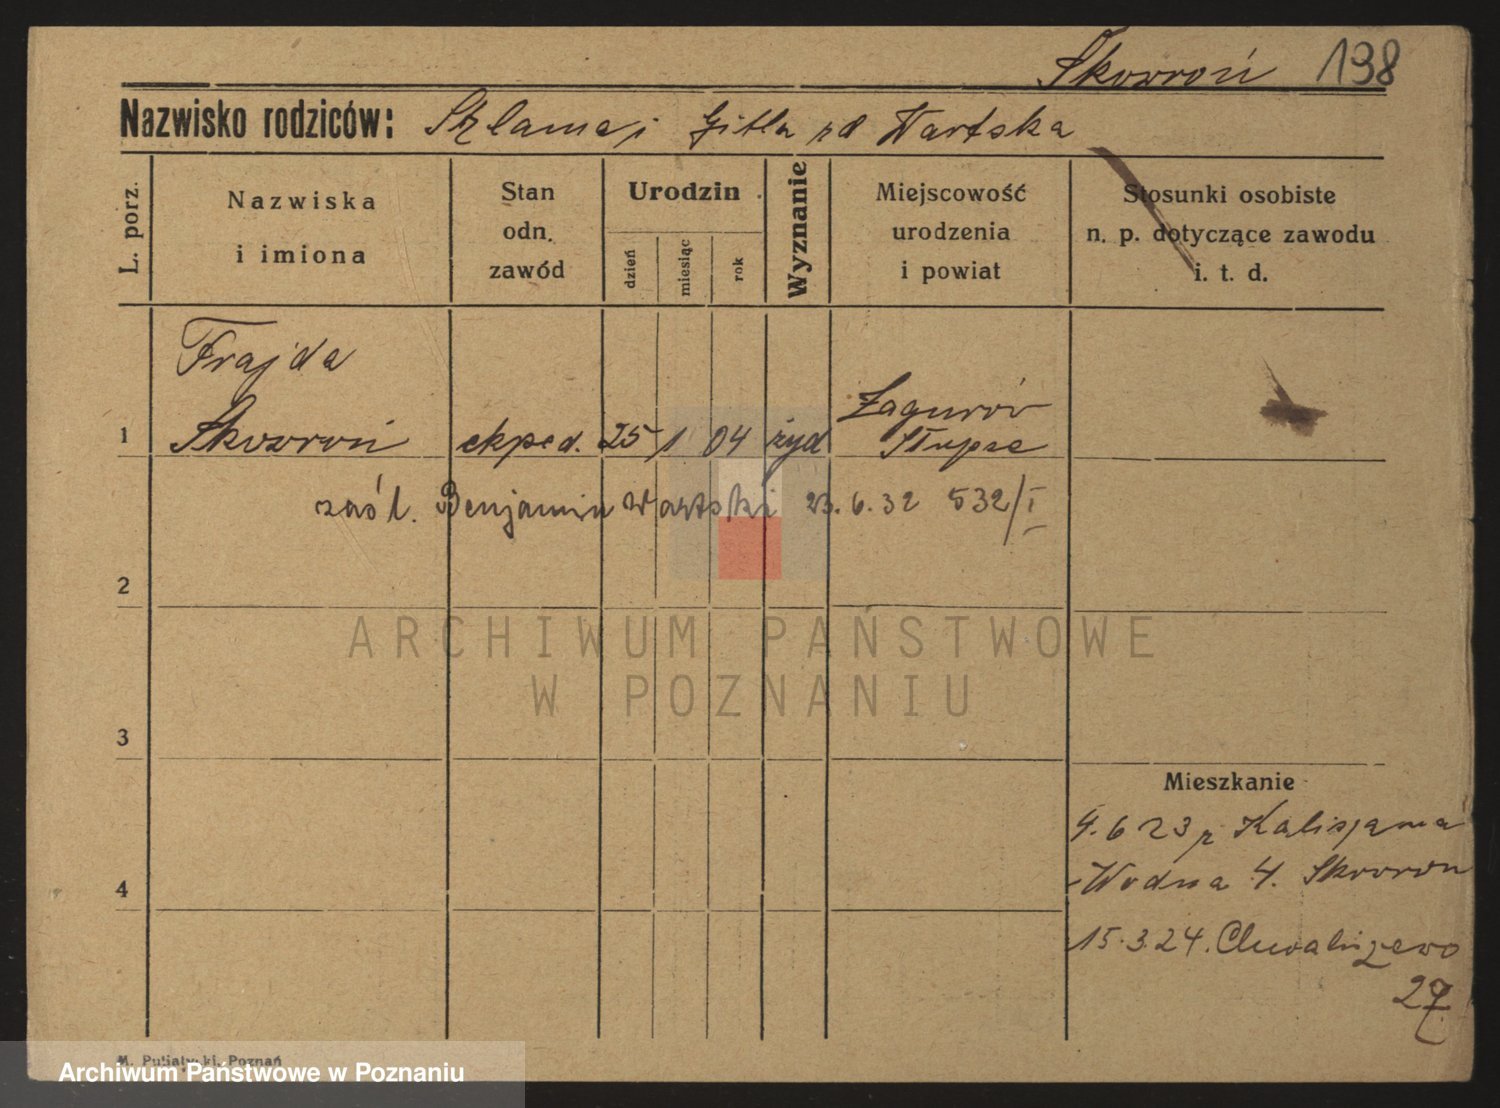 Skowroń 138
Nazwisko rodziców: Szlama i Gitla zd Wartska
L. porz.
Nazwiska
i imiona
Stan
odn.
zawód
Urodzin
dzień
miesiąc
rok
Wyznanie
Miejscowość
urodzenia
i powiat
Stosunki osobiste
n. p. dotyczące zawodu
i. t. d.
Frajda
Zagurów
1 Skowroń ekped. 25 1 04 żyd Słupca
zaśl. Benjamin Wartski 23.6.32 532/I
2
ARCHIWUM PAŃSTWOWE
W POZNANIU
3
Mieszkanie
4.6 23 z Kalisza
Wodna 4. Skowron
4
15.3.24. Chwaliszewo
27.
M. Putiatycki, Poznań
Archiwum Państwowe w Poznaniu